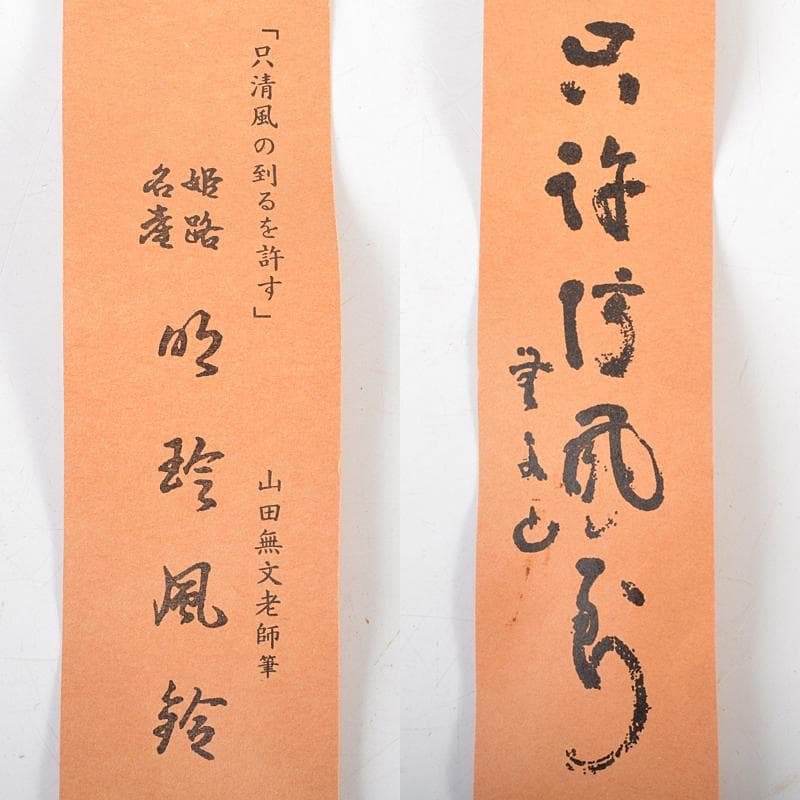 「只清風の到るを許す」
山田無文老師筆
姫路
名産
明玲風鈴
只許清風到
無文山